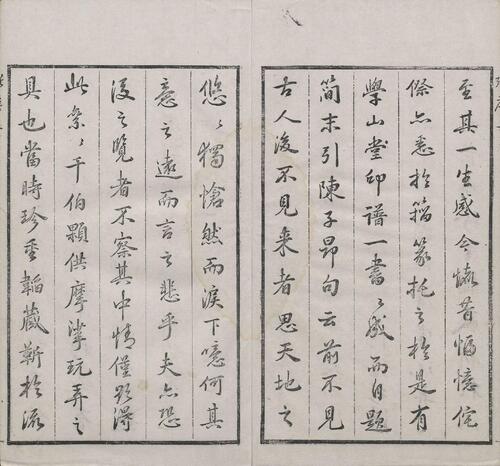 至其一生感今懷昔悃愊侘
傺亦悉於籀篆托之於是有
學山堂印譜一書〻成而自題
簡末引陳子昂句云前不見
古人後不見来者思天地之
悠〻獨愴然而淚下噫何其
意之遠而言之悲乎夫亦恐
後之覽者不察其中情僅詑得
此纍〻千伯顆供摩挲玩弄之
具也當時珍重韜藏靳於流